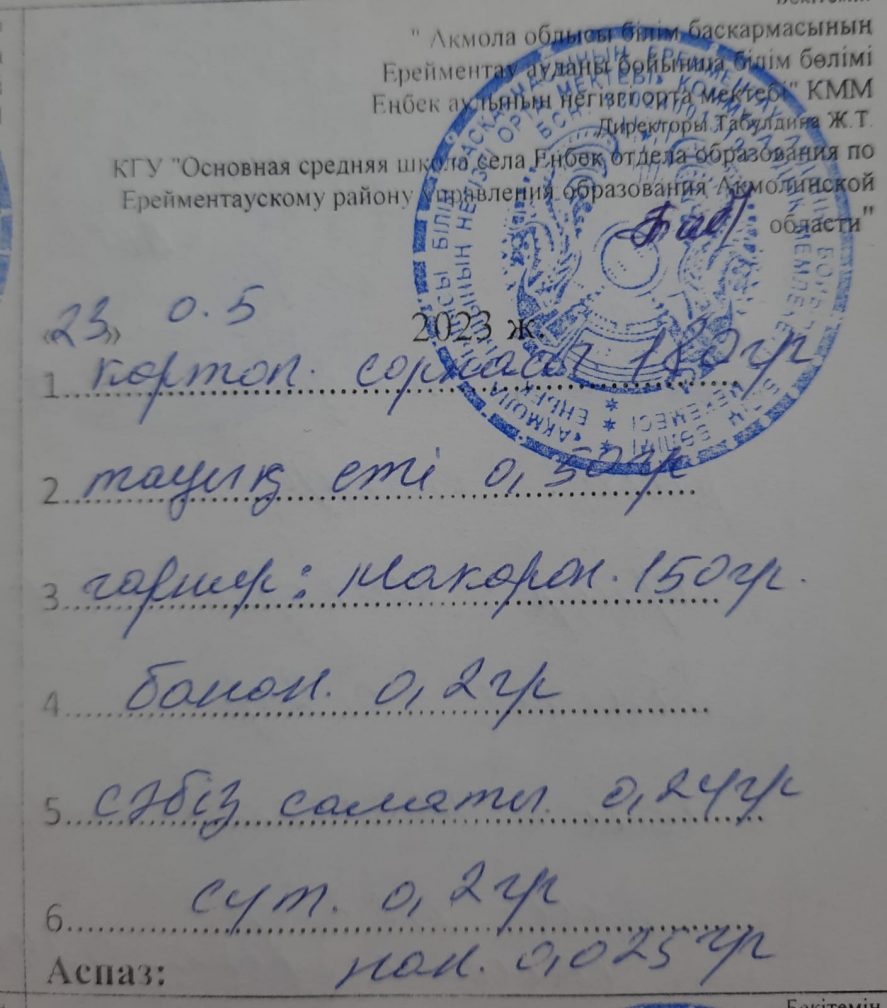 " Ақмола облысы білім басқармасының
Ерейментау ауданы бойынша білім бөлімі
Еңбек ауылының негізгі орта мектебі" КММ
Директоры Табулдина Ж.Т.
КГУ "Основная средняя школа села Енбек отдела образования по
Ерейментаускому району управления образования Акмолинской
области"
«23» 0.5 2023 ж.
1. картоп. сорпасы 180гр
2. тауық еті 0,50гр
3. гарнир: макарон. 150гр.
4. банан. 0,2гр
5. сәбіз салаты 0,24гр
6. сүт. 0,2гр
Аспаз: нан. 0,025гр
Бекітемін